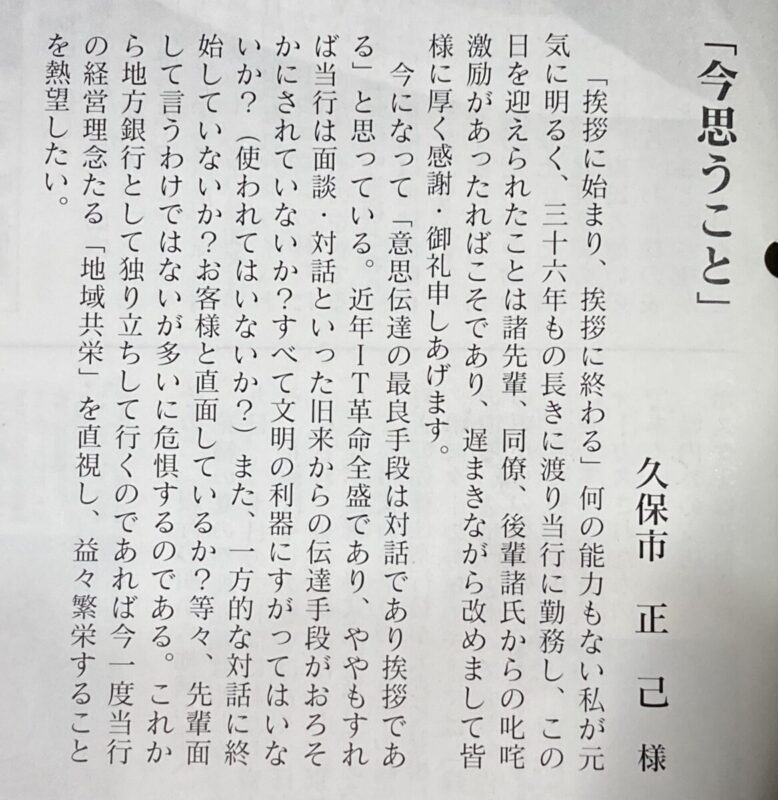 「今思うこと」
久保市 正己 様
「挨拶に始まり、挨拶に終わる」何の能力もない私が元
気に明るく、三十六年もの長きに渡り当行に勤務し、この
日を迎えられたことは諸先輩、同僚、後輩諸氏からの叱咤
激励があったればこそであり、遅まきながら改めまして皆
様に厚く感謝・御礼申しあげます。
今になって「意思伝達の最良手段は対話であり挨拶であ
る」と思っている。近年IT革命全盛であり、ややもすれ
ば当行は面談・対話といった旧来からの伝達手段がおろそ
かにされていないか？すべて文明の利器にすがってはいな
いか？（使われてはいないか？）また、一方的な対話に終
始していないか？お客様と直面しているか？等々、先輩面
して言うわけではないが多いに危惧するのである。これか
ら地方銀行として独り立ちして行くのであれば今一度当行
の経営理念たる「地域共栄」を直視し、益々繁栄すること
を熱望したい。